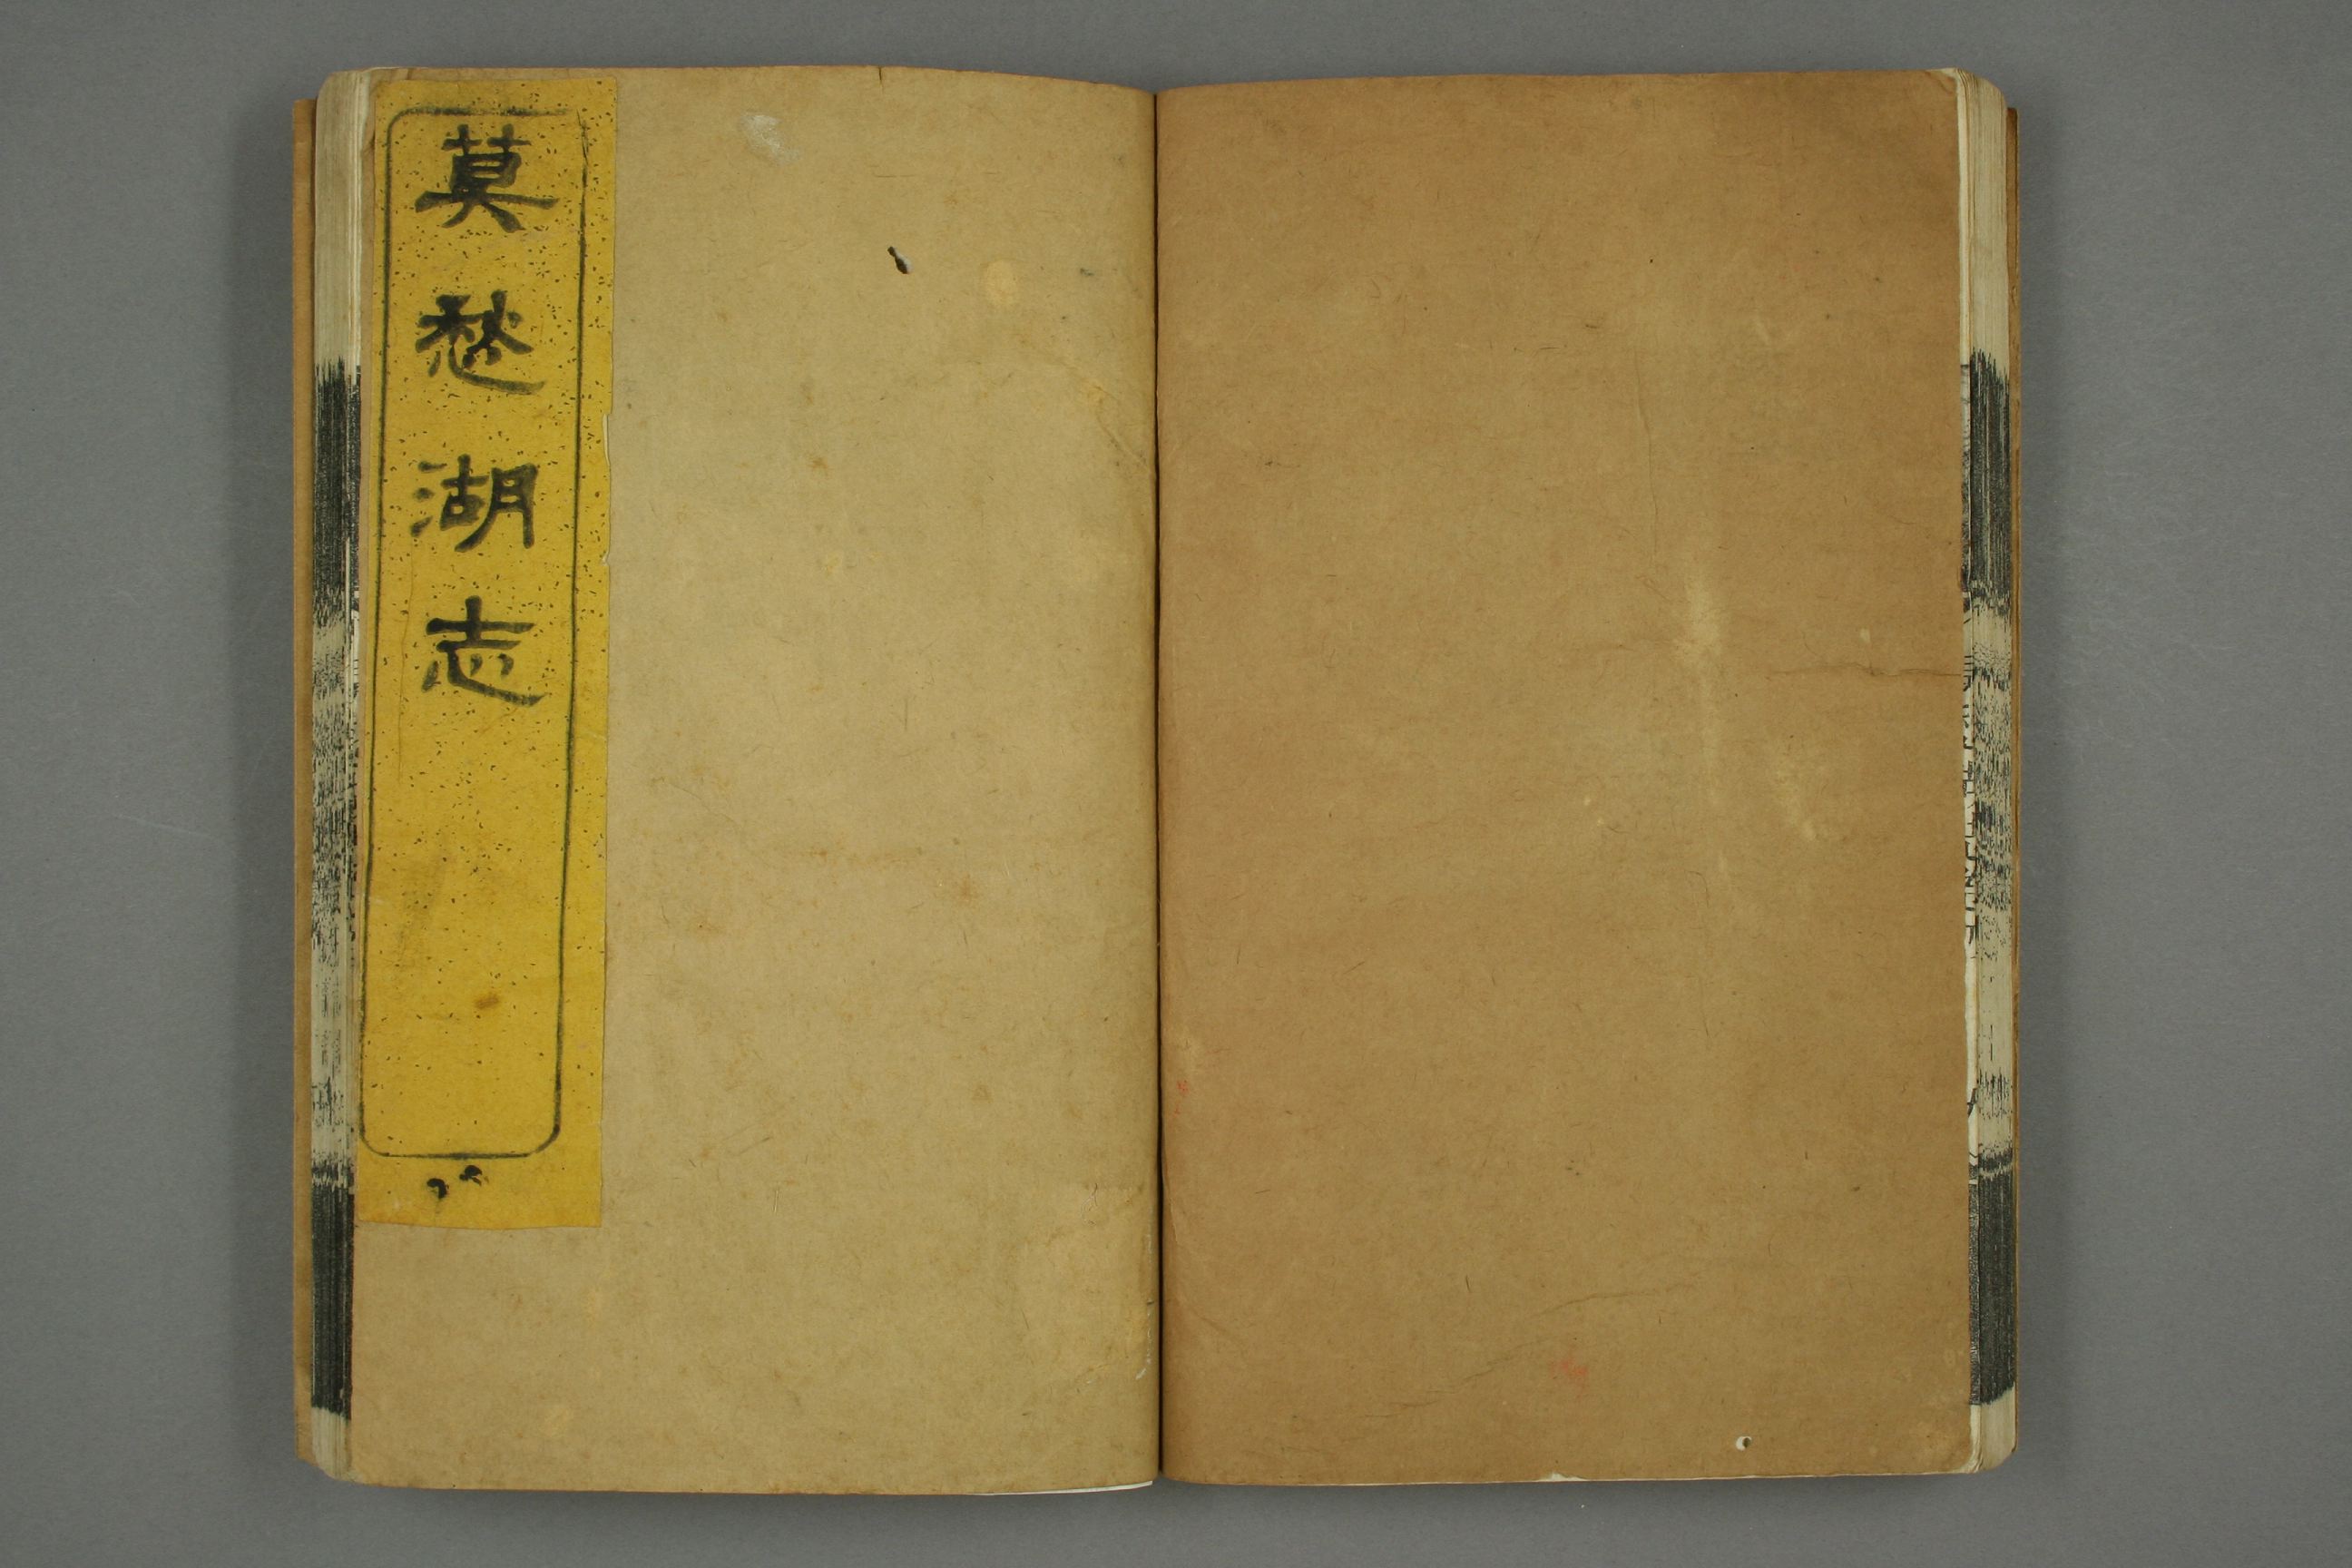 莫愁湖志